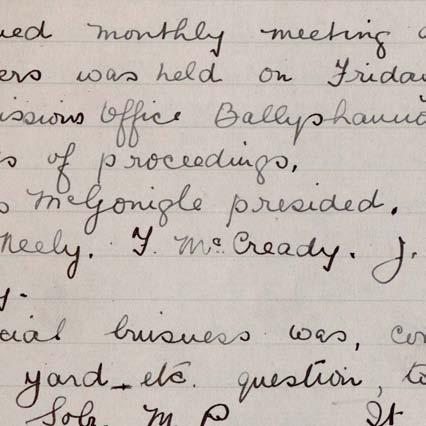 ued monthly meeting
ers was held on Friday
issions Office Ballyshanno
s of proceedings.
s McGonigle presided.
Neely. F. Mc Cready. J.
y.
cial buisness was, con
yard etc. question, to
Solr. M It